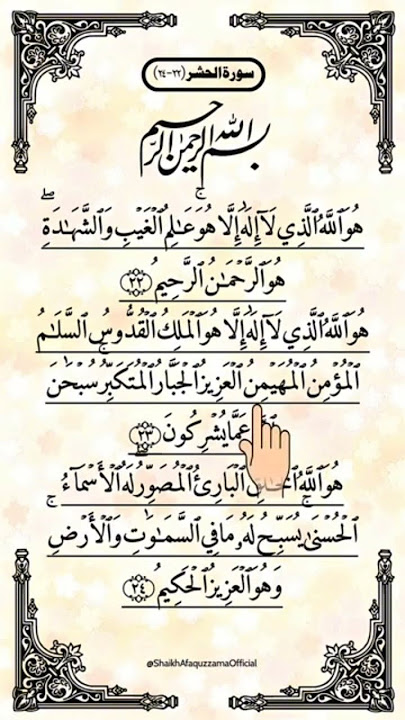 سورة الحشر (٢٢-٢٤)
بسم الله الرحمن الرحيم
هُوَ ٱللَّهُ ٱلَّذِي لَآ إِلَٰهَ إِلَّا هُوَ عَٰلِمُ ٱلْغَيْبِ وَٱلشَّهَٰدَةِۖ
هُوَ ٱلرَّحْمَٰنُ ٱلرَّحِيمُ ٢٢
هُوَ ٱللَّهُ ٱلَّذِي لَآ إِلَٰهَ إِلَّا هُوَ ٱلْمَلِكُ ٱلْقُدُّوسُ ٱلسَّلَٰمُ
ٱلْمُؤْمِنُ ٱلْمُهَيْمِنُ ٱلْعَزِيزُ ٱلْجَبَّارُ ٱلْمُتَكَبِّرُۚ سُبْحَٰنَ
عَمَّا يُشْرِكُونَ ٢٣
هُوَ ٱللَّهُ ٱلْبَارِئُ ٱلْمُصَوِّرُۖ لَهُ ٱلْأَسْمَآءُ
ٱلْحُسْنَىٰۚ يُسَبِّحُ لَهُۥ مَا فِي ٱلسَّمَٰوَٰتِ وَٱلْأَرْضِۖ
وَهُوَ ٱلْعَزِيزُ ٱلْحَكِيمُ ٢٤
@ShaikhAfaquzzamaOfficial